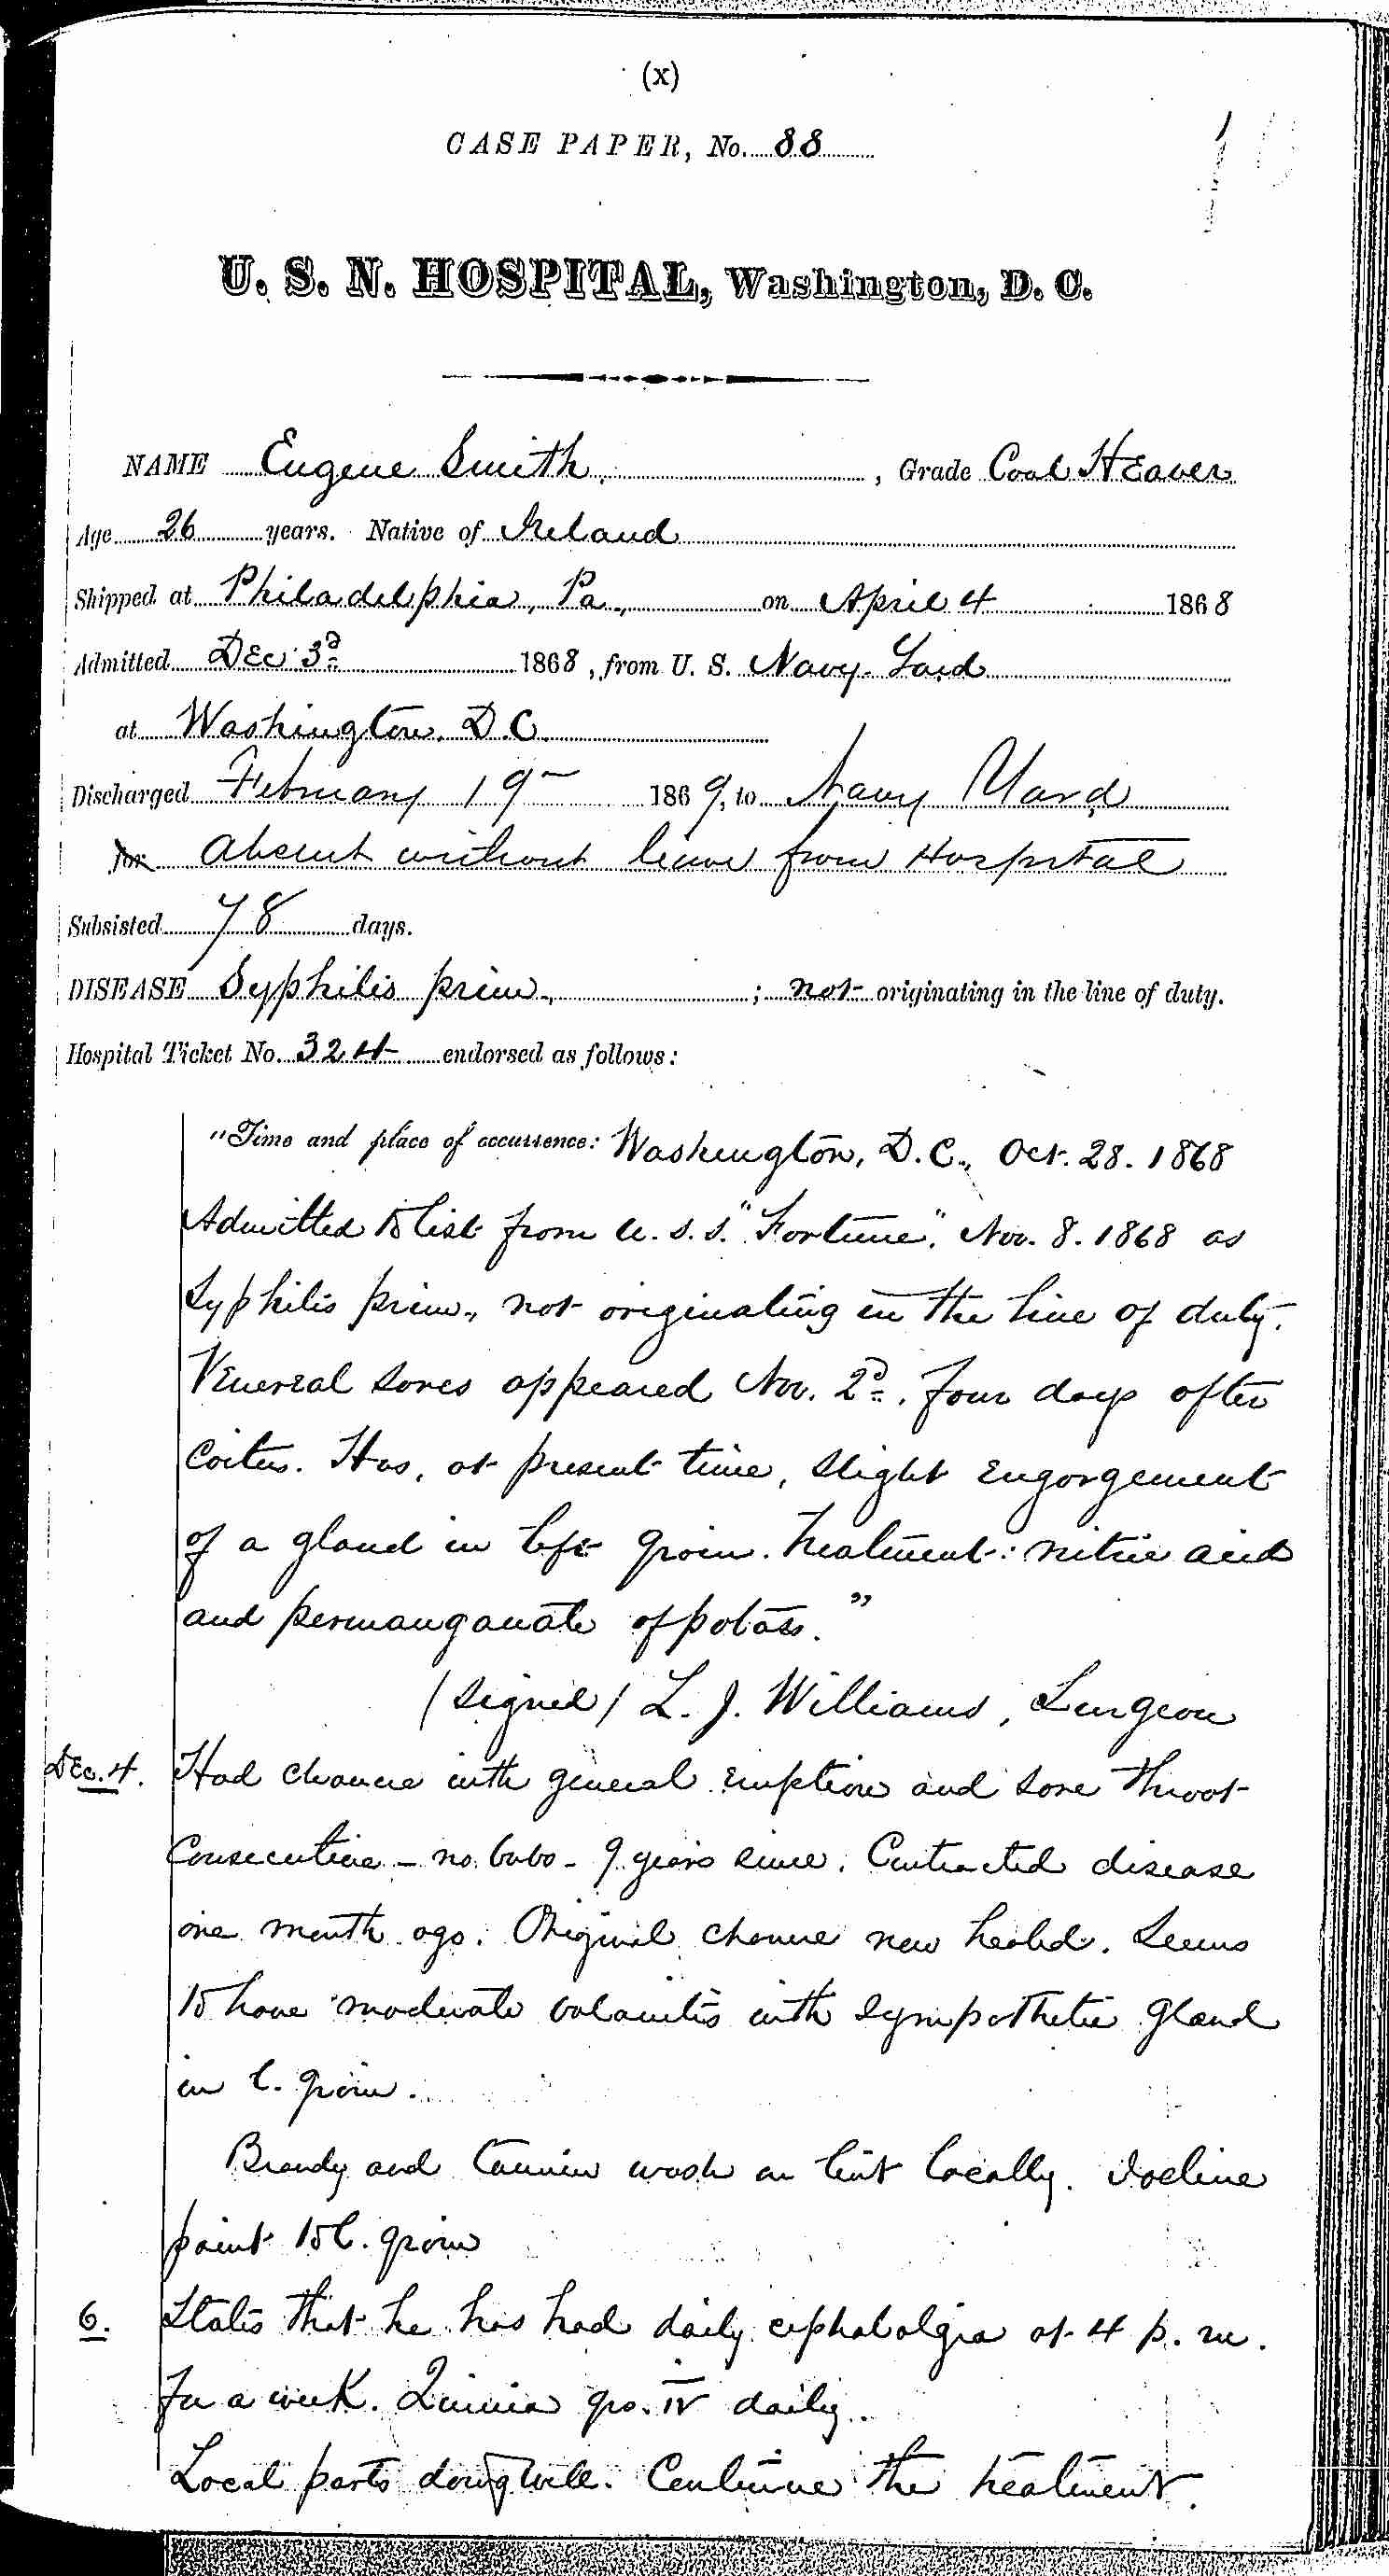 (x)
CASE PAPER, No. 88
U. S. N. HOSPITAL, Washington, D. C.
NAME Eugene Smith, , Grade Coal Heaver
Age 26 years. Native of Ireland
Shipped at Philadelphia, Pa., on April 4 1868
Admitted Dec. 3d 1868, from U. S. Navy Yard
at Washington, D.C.
Discharged February 19 1869, to Navy Yard
for Absent without leave from Hospital
Subsisted 78 days.
DISEASE Syphilis prim., ; not originating in the line of duty.
Hospital Ticket No. 324 endorsed as follows:
"Time and place of occurrence: Washington, D.C., Oct. 28. 1868
Admitted to list from U.S.S. "Fortune", Nov. 8. 1868 as
Syphilis prim., not originating in the line of duty.
Venereal sores appeared Nov. 2d, four days after
coitus. Has, at present time, slight engorgement
of a gland in left groin. Treatment: nitric acid
and permanganate of potass."
(signed) L. J. Williams, Surgeon
Dec. 4. Had chancre with general eruption and sore throat
consecutive - no bubo - 9 years since. Contracted disease
one month ago. Original chancre now healed. Seems
to have moderate balanitis with sympathetic gland
in l. groin.
Brandy and tannin wash on lint locally. Iodine
paint to l. groin
6. States that he has had daily cephalalgia at 4 p.m.
for a week. Quinia grs. IV daily.
Local parts doing well. Continue the treatment.